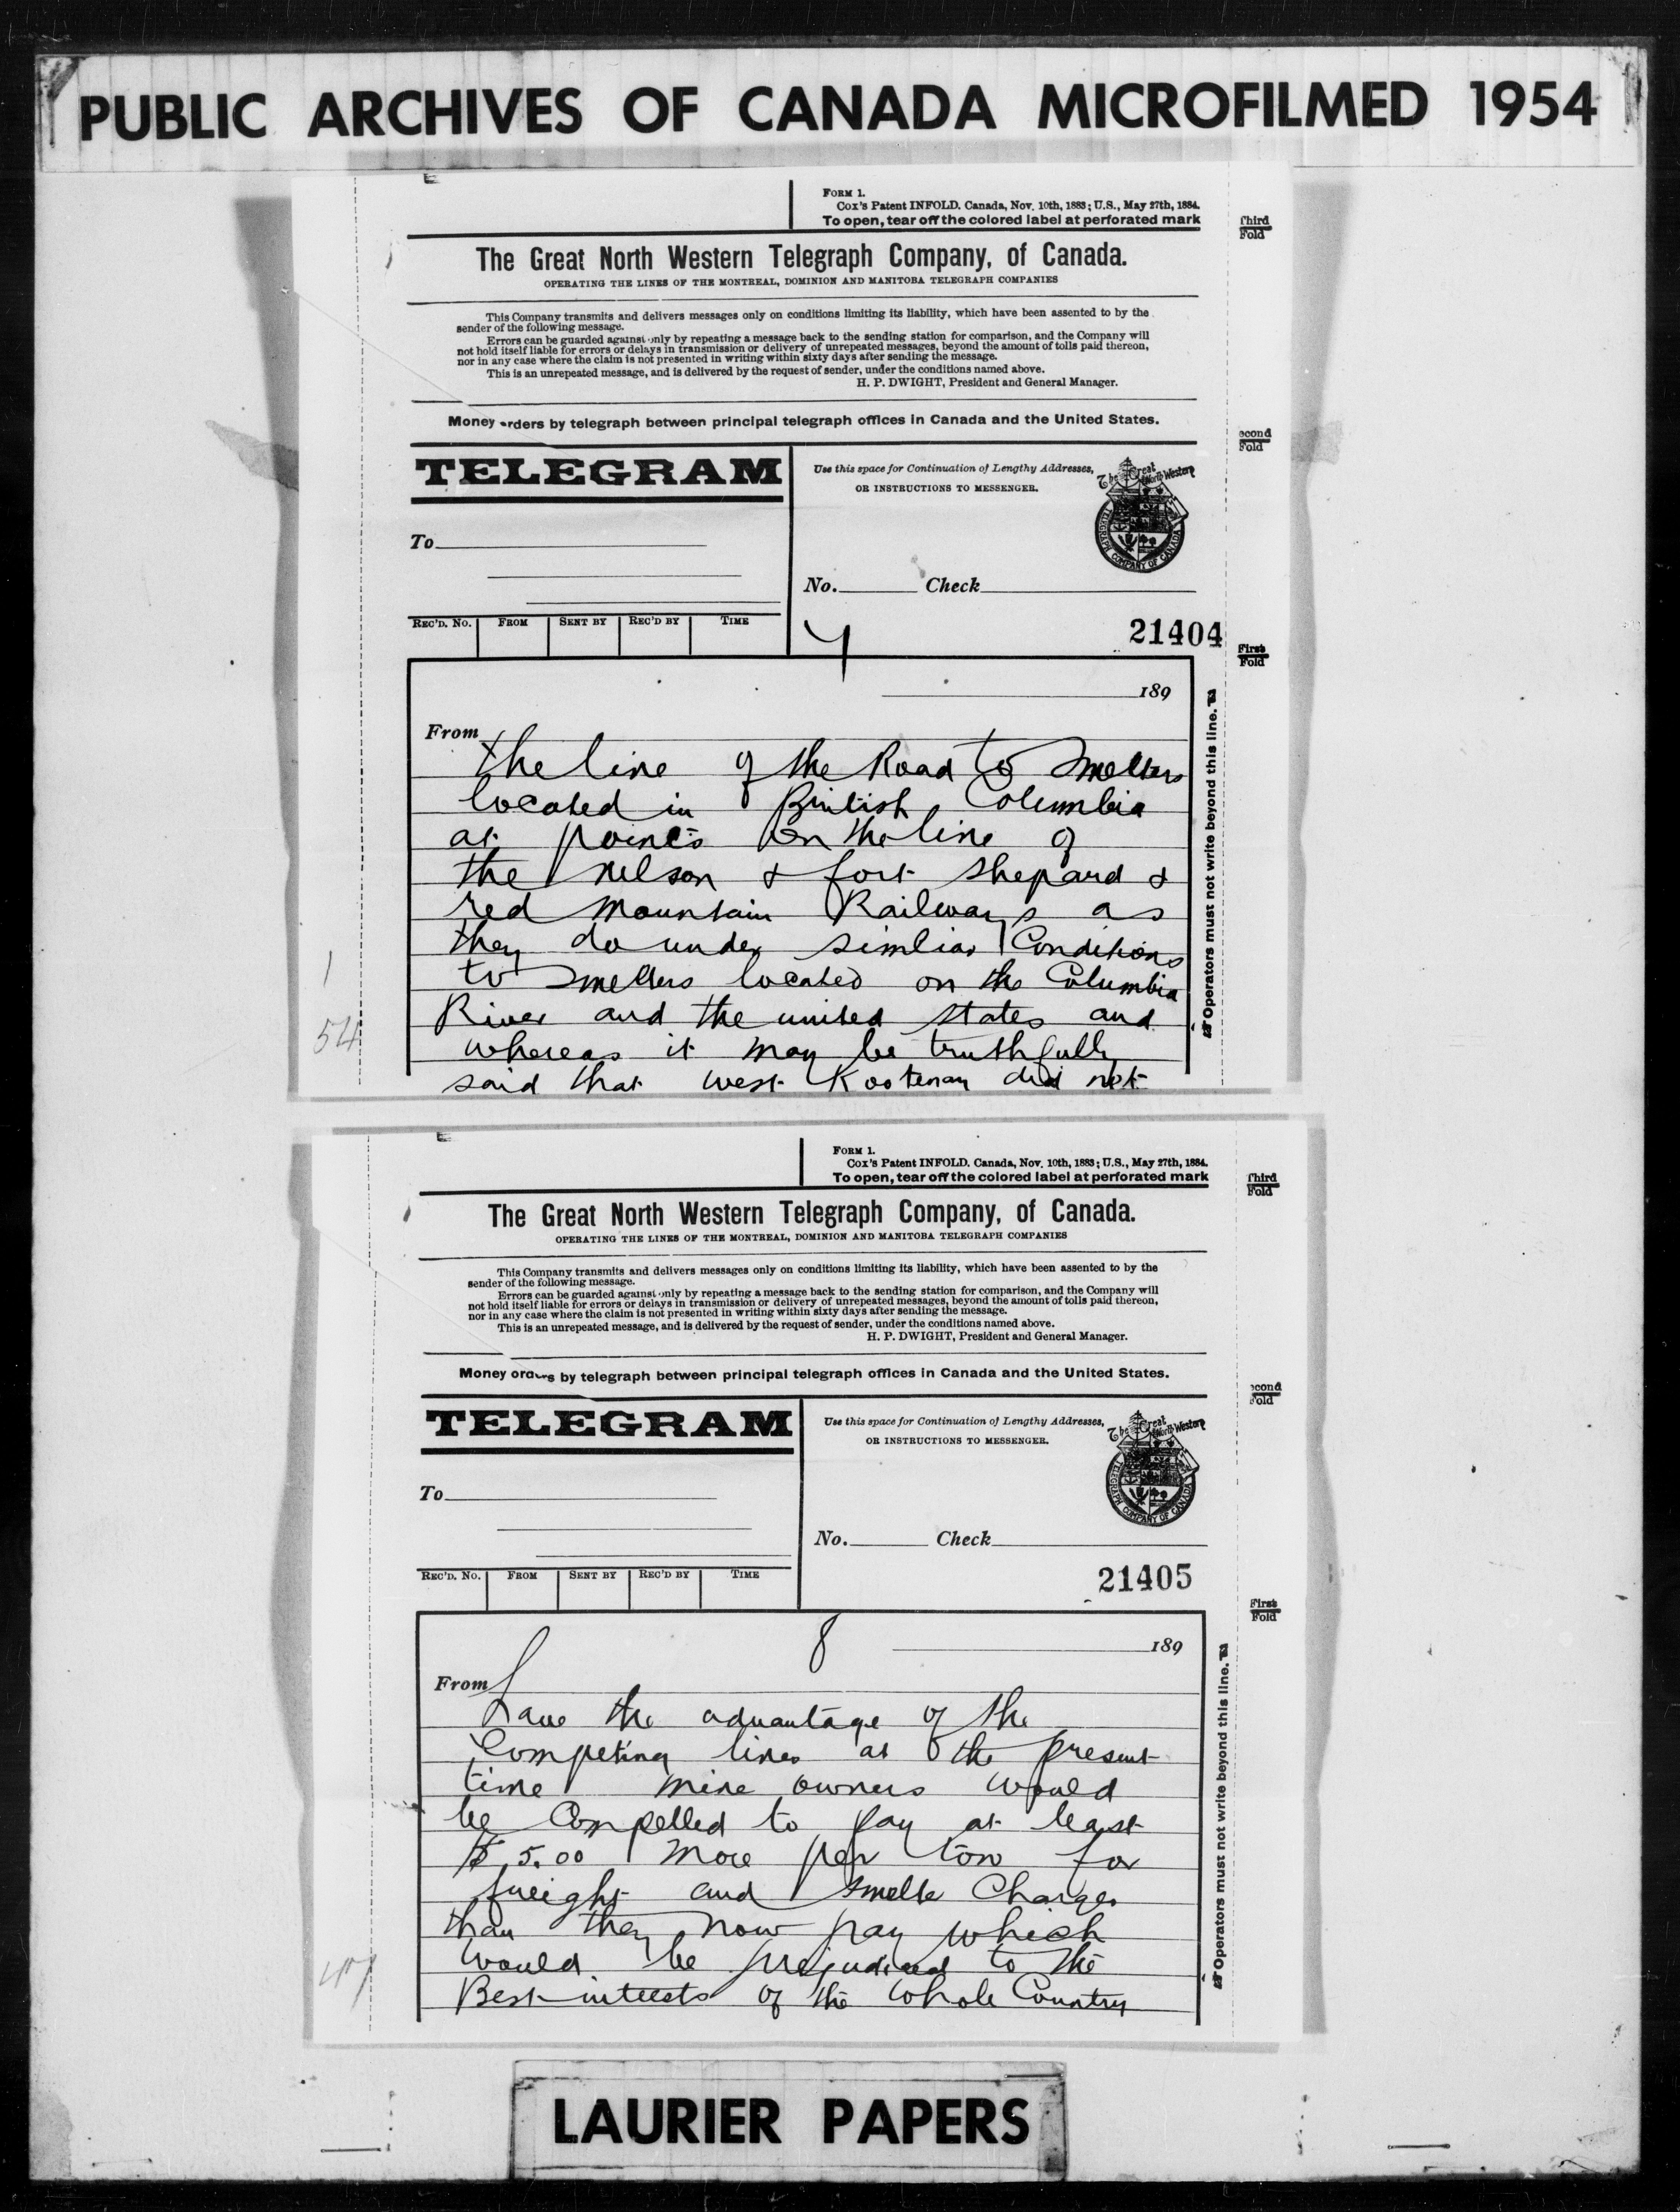 PUBLIC ARCHIVES OF CANADA MICROFILMED 1954
FORM 1.
Cox's Patent INFOLD. Canada, Nov. 10th, 1883; U.S., May 27th, 1884.
To open, tear off the colored label at perforated mark
Third
Fold
The Great North Western Telegraph Company, of Canada.
OPERATING THE LINES OF THE MONTREAL, DOMINION AND MANITOBA TELEGRAPH COMPANIES
This Company transmits and delivers messages only on conditions limiting its liability, which have been assented to by the
sender of the following message.
Errors can be guarded against only by repeating a message back to the sending station for comparison, and the Company will
not hold itself liable for errors or delays in transmission or delivery of unrepeated messages, beyond the amount of tolls paid thereon,
nor in any case where the claim is not presented in writing within sixty days after sending the message.
This is an unrepeated message, and is delivered by the request of sender, under the conditions named above.
H. P. DWIGHT, President and General Manager.
Money orders by telegraph between principal telegraph offices in Canada and the United States.
econd
Fold
TELEGRAM
Use this space for Continuation of Lengthy Addresses,
OR INSTRUCTIONS TO MESSENGER.
The Great North Western
TELEGRAPH COMPANY OF CANADA
To
No. Check
REC'D. No. FROM SENT BY REC'D BY TIME
7
21404
First
Fold
189
From
the line of the Road to Smelters
located in British Columbia
at points on the line of
the nelson & fort shepard &
red mountain Railways as
they do under simliar Conditions
to Smelters located on the Columbia
River and the united states and
whereas it may be truthfully
said that west Kootenay did not
Operators must not write beyond this line.
1
54
FORM 1.
Cox's Patent INFOLD. Canada, Nov. 10th, 1883; U.S., May 27th, 1884.
To open, tear off the colored label at perforated mark
Third
Fold
The Great North Western Telegraph Company, of Canada.
OPERATING THE LINES OF THE MONTREAL, DOMINION AND MANITOBA TELEGRAPH COMPANIES
This Company transmits and delivers messages only on conditions limiting its liability, which have been assented to by the
sender of the following message.
Errors can be guarded against only by repeating a message back to the sending station for comparison, and the Company will
not hold itself liable for errors or delays in transmission or delivery of unrepeated messages, beyond the amount of tolls paid thereon,
nor in any case where the claim is not presented in writing within sixty days after sending the message.
This is an unrepeated message, and is delivered by the request of sender, under the conditions named above.
H. P. DWIGHT, President and General Manager.
Money orders by telegraph between principal telegraph offices in Canada and the United States.
econd
Fold
TELEGRAM
Use this space for Continuation of Lengthy Addresses,
OR INSTRUCTIONS TO MESSENGER.
The Great North Western
TELEGRAPH COMPANY OF CANADA
To
No. Check
REC'D. No. FROM SENT BY REC'D BY TIME
21405
First
Fold
8
189
From
have the advantage of the
Competing lines at the present
time mine owners would
be Compelled to pay at least
$5.00 more per ton for
freight and smelte Charges
than they now pay which
would be prejudiced to the
Best interests of the whole Country
Operators must not write beyond this line.
LAURIER PAPERS